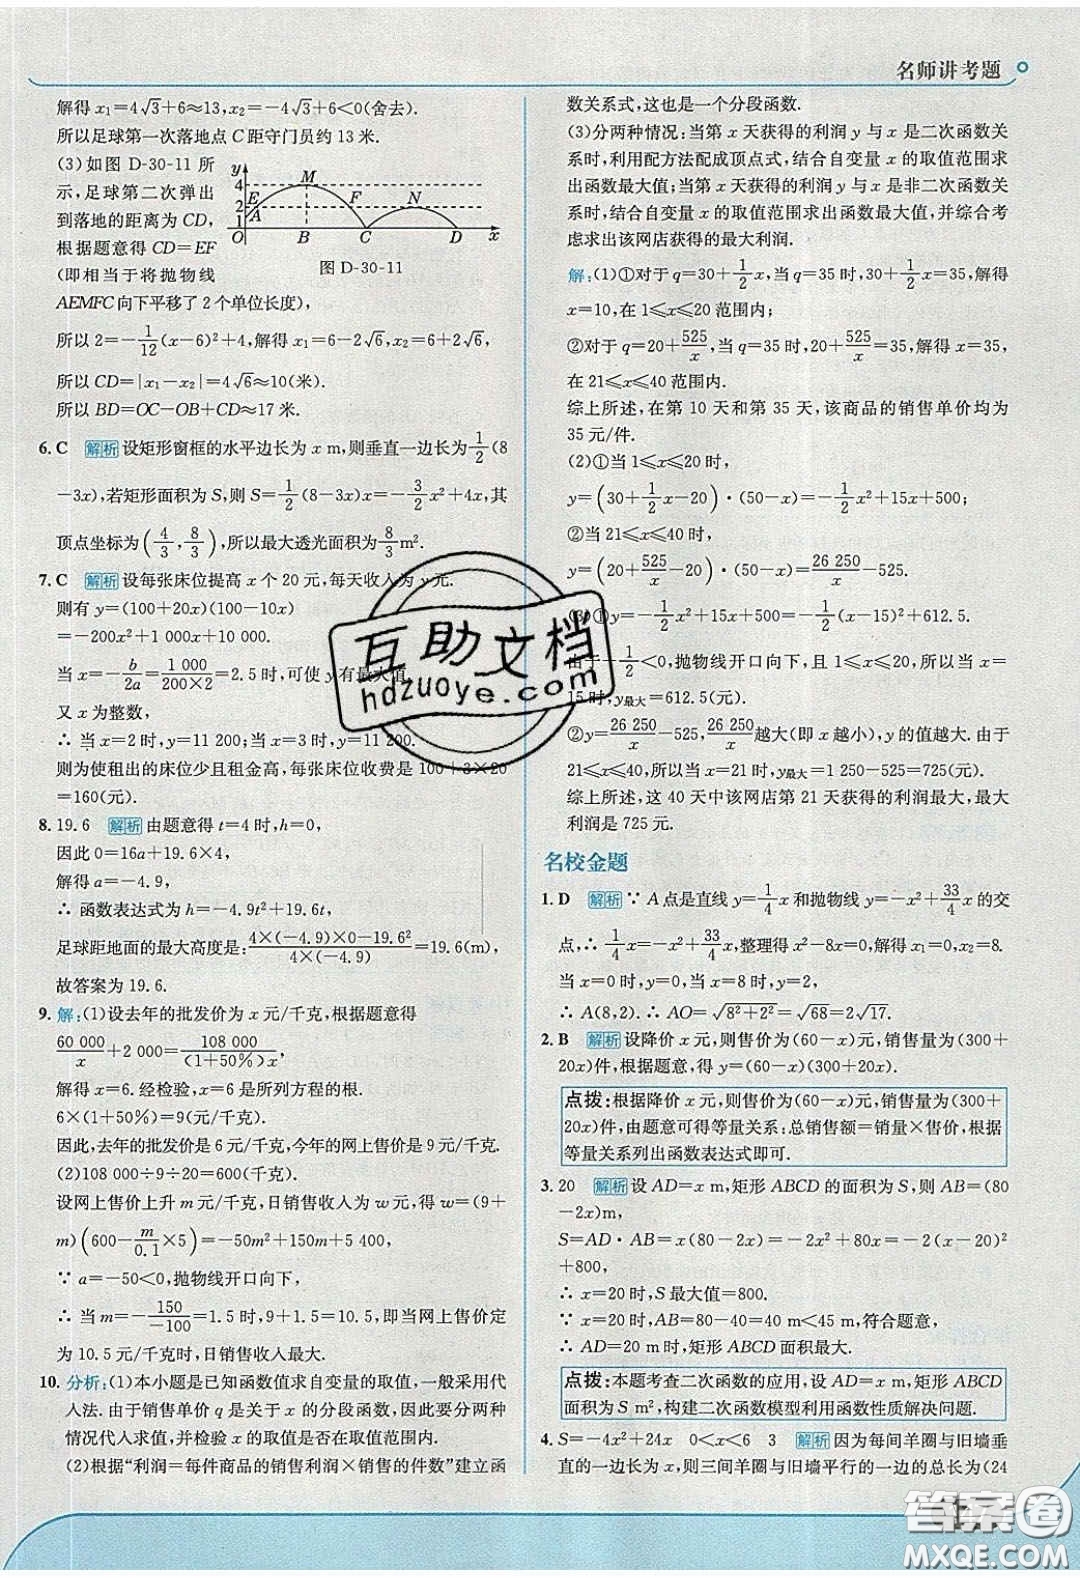 名师讲考题
解得 x₁=4√3+6≈13,x₂=-4√3+6<0(舍去).
所以足球第一次落地点 C 距守门员约 13 米.
(3)如图 D-30-11 所
示,足球第二次弹出
到落地的距离为 CD,
根据题意得 CD=EF
(即相当于将抛物线
AEMFC 向下平移了 2 个单位长度),
y
4
2
1
O
E
A
M
F
N
B
C
D
x
图 D-30-11
所以 2=-1/12(x-6)²+4,解得 x₁=6-2√6,x₂=6+2√6,
所以 CD=|x₁-x₂|=4√6≈10(米).
所以 BD=OC-OB+CD≈17 米.
6. C 解析 设矩形窗框的水平边长为 x m,则垂直一边长为1/2(8
-3x),若矩形面积为 S,则 S=1/2(8-3x)x=-3/2x²+4x,其
顶点坐标为(4/3,8/3),所以最大透光面积为8/3m².
7. C 解析 设每张床位提高 x 个 20 元,每天收入为 y 元.
则有 y=(100+20x)(100-10x)
=-200x²+1 000x+10 000.
当 x=-b/2a=1 000/200×2=2.5 时,可使 y 有最大值.
又 x 为整数,
∴ 当 x=2 时,y=11 200;当 x=3 时,y=11 200.
则为使租出的床位少且租金高,每张床位收费是 100+3×20
=160(元).
8. 19.6 解析 由题意得 t=4 时,h=0,
因此 0=16a+19.6×4,
解得 a=-4.9,
∴ 函数表达式为 h=-4.9t²+19.6t,
足球距地面的最大高度是:4×(-4.9)×0-19.6²/4×(-4.9)=19.6(m),
故答案为 19.6.
9. 解:(1)设去年的批发价为 x 元/千克,根据题意得
60 000/x+2 000=108 000/(1+50%)x,
解得 x=6.经检验,x=6 是所列方程的根.
6×(1+50%)=9(元/千克).
因此,去年的批发价是 6 元/千克,今年的网上售价是 9 元/千克.
(2)108 000÷9÷20=600(千克).
设网上售价上升 m 元/千克,日销售收入为 w 元,得 w=(9+
m)(600-m/0.1×5)=-50m²+150m+5 400,
∵ a=-50<0,抛物线开口向下,
∴ 当 m=-150/-100=1.5 时,9+1.5=10.5,即当网上售价定
为 10.5 元/千克时,日销售收入最大.
10. 分析:(1)本小题是已知函数值求自变量的取值,一般采用代
人法.由于销售单价 q 是关于 x 的分段函数,因此要分两种
情况代入求值,并检验 x 的取值是否在取值范围内.
(2)根据“利润=每件商品的销售利润×销售的件数”建立函
数关系式,这也是一个分段函数.
(3)分两种情况:当第 x 天获得的利润 y 与 x 是二次函数关
系时,利用配方法配成顶点式,结合自变量 x 的取值范围求
出函数最大值;当第 x 天获得的利润 y 与 x 是非二次函数关
系时,结合自变量 x 的取值范围求出函数最大值,并综合考
虑求出该网店获得的最大利润.
解:(1)①对于 q=30+1/2x,当 q=35 时,30+1/2x=35,解得
x=10,在 1≤x≤20 范围内;
②对于 q=20+525/x,当 q=35 时,20+525/x=35,解得 x=35,
在 21≤x≤40 范围内.
综上所述,在第 10 天和第 35 天,该商品的销售单价均为
35 元/件.
(2)①当 1≤x≤20 时,
y=(30+1/2x-20)·(50-x)=-1/2x²+15x+500;
②当 21≤x≤40 时,
y=(20+525/x-20)·(50-x)=26 250/x-525.
(3)①y=-1/2x²+15x+500=-1/2(x-15)²+612.5.
由于-1/2<0,抛物线开口向下,且 1≤x≤20,所以当 x=
15 时,y最大=612.5(元).
②y=26 250/x-525,26 250/x越大(即 x 越小),y 的值越大.由于
21≤x≤40,所以当 x=21 时,y最大=1 250-525=725(元).
综上所述,这 40 天中该网店第 21 天获得的利润最大,最大
利润是 725 元.
名校金题
1. D 解析 ∵ A 点是直线 y=1/4x 和抛物线 y=-x²+33/4x 的交
点,∴ 1/4x=-x²+33/4x,整理得 x²-8x=0,解得 x₁=0,x₂=8.
当 x=0 时,y=0,当 x=8 时,y=2,
∴ A(8,2).∴ AO=√8²+2²=√68=2√17.
2. B 解析 设降价 x 元,则售价为(60-x)元,销售量为(300+
20x)件,根据题意,得 y=(60-x)(300+20x).
点拨:根据降价 x 元,则售价为(60-x)元,销售量为(300+
20x)件,由题意可得等量关系:总销售额=销量×售价,根据
等量关系列出函数表达式即可.
3. 20 解析 设 AD=x m,矩形 ABCD 的面积为 S,则 AB=(80
-2x)m,
S=AD·AB=x(80-2x)=-2x²+80x=-2(x-20)²
+800,
∴ x=20 时,S 最大值=800.
∵ x=20 时,AB=80-40=40 m<45 m,符合题意,
∴ AD=20 m 时,矩形 ABCD 面积最大.
点拨:本题考查二次函数的应用,设 AD=x m,矩形 ABCD
面积为 S m²,构建二次函数模型利用函数性质解决问题.
4. S=-4x²+24x 0<x<6 3 解析 因为每间羊圈与旧墙垂
直的一边的长为 x m,则三间羊圈与旧墙平行的一边的总长为(24
互助文档
hdzuoye.com
答案圈
MXQE.COM